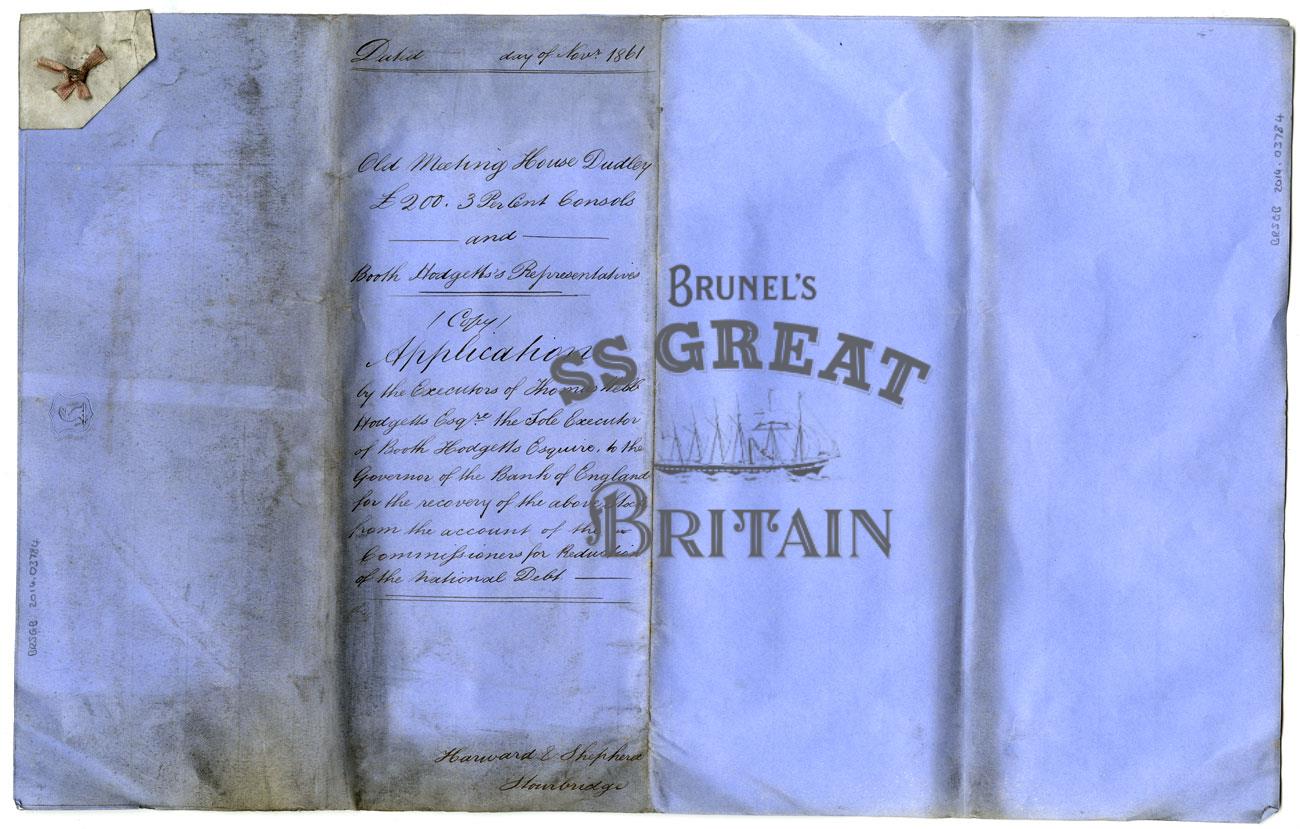 Dated day of Novr. 1861
Old Meeting House Dudley
£200. 3 Per Cent Consols
and
Booth Hodgetts's Representatives
/ Copy /
Application
by the Executors of Thomas Webb
Hodgetts Esqre. the Sole Executor
of Booth Hodgetts Esquire, to the
Governor of the Bank of England
for the recovery of the above Stock
from the account of the
Commissioners for Reduction
of the National Debt
Harward & Shepherd
Stourbridge
BRUNEL'S
SS GREAT
BRITAIN
BRSGB 2014.03784
BRSGB 2014.03784